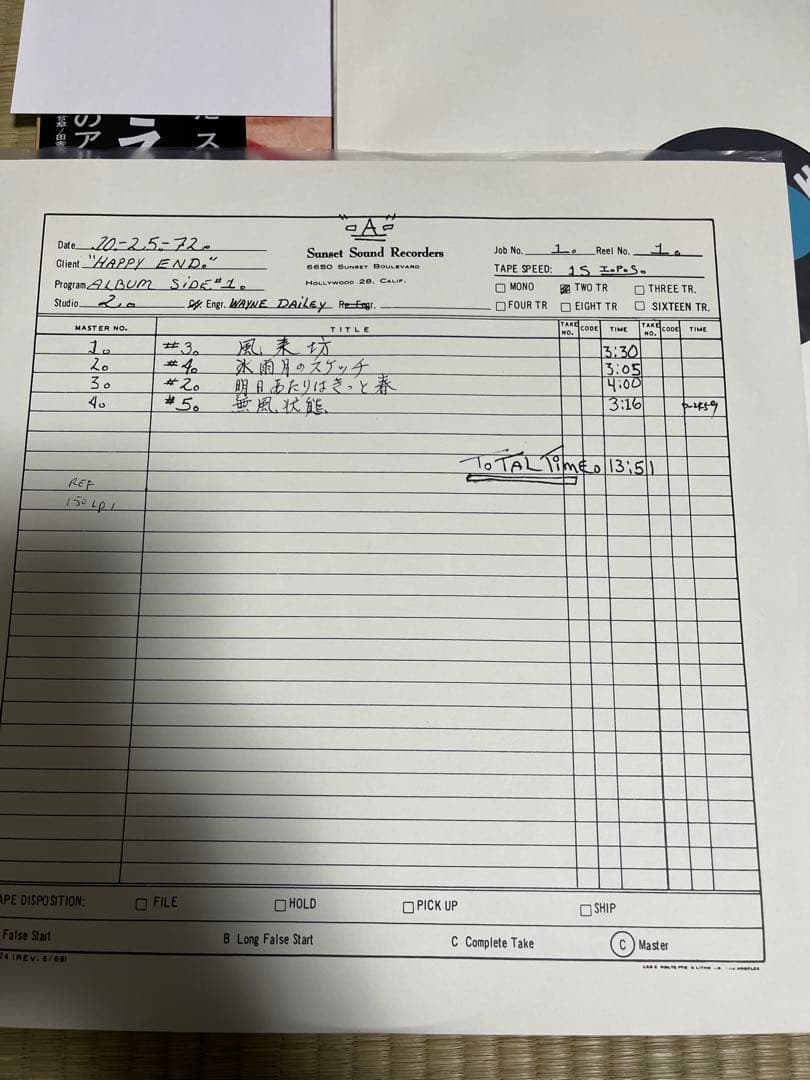 "A"
Date 10-25-72.
Client "HAPPY END."
Program ALBUM SiDE #1.
Studio 2.
Engr. WAYNE DAiLEY Re-Engr.
Sunset Sound Recorders
6650 SUNSET BOULEVARD
HOLLYWOOD 28, CALIF.
Job No. 1. Reel No. 1.
TAPE SPEED: 15 I.P.S.
MONO TWO TR THREE TR.
FOUR TR EIGHT TR SIXTEEN TR.
MASTER NO. TITLE TAKE NO. CODE TIME TAKE NO. CODE TIME
1. #3. 風来坊 3:30
2. #4. 氷雨月のスケッチ 3:05
3. #2. 明日あたりはきっと春 4:00
4. #5. 無風状態 3:16
TOTAL TiME. 13:51
REF
APE DISPOSITION: FILE HOLD PICK UP SHIP
False Start B Long False Start C Complete Take C Master
24 (REV. 6/69)